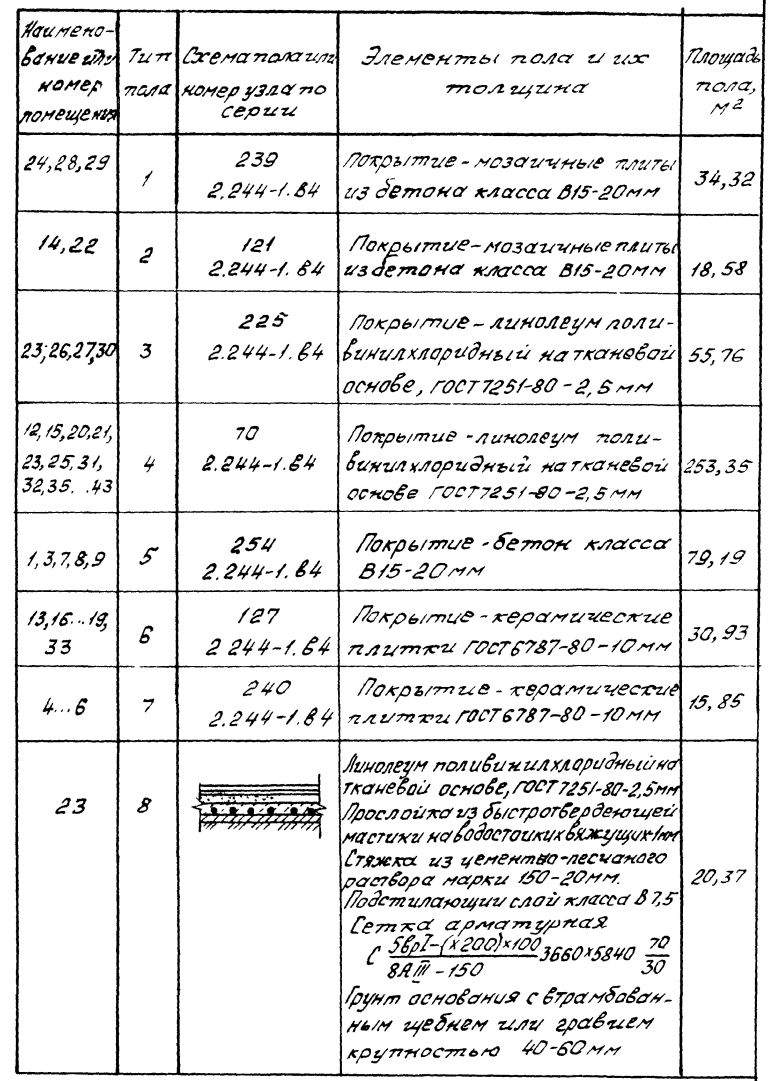 Наимено-
вание или
номер
помещения
Тип
пола
Схема пола или
номер узла по
серии
Элементы пола и их
толщина
Площадь
пола,
м²
24,28,29
1
239
2.244-1.В4
Покрытие - мозаичные плиты
из бетона класса В15-20мм
34,32
14,22
2
121
2.244-1.В4
Покрытие - мозаичные плиты
из бетона класса В15-20мм
18,58
23;26,27,30
3
225
2.244-1.В4
Покрытие - линолеум поли-
винилхлоридный на тканевой
основе, ГОСТ 7251-80 - 2,5 мм
55,76
12,15,20,21,
23,25,31,
32,35...43
4
70
2.244-1.В4
Покрытие - линолеум поли-
винилхлоридный на тканевой
основе ГОСТ 7251-80-2,5мм
253,35
1,3,7,8,9
5
254
2.244-1.В4
Покрытие - бетон класса
В15-20мм
79,19
13,16...19,
33
6
127
2.244-1.В4
Покрытие - керамические
плитки ГОСТ 6787-80-10мм
30,93
4...6
7
240
2.244-1.В4
Покрытие - керамические
плитки ГОСТ 6787-80-10мм
15,85
23
8
Линолеум поливинилхлоридный на
тканевой основе, ГОСТ 7251-80-2,5мм
Прослойка из быстротвердеющей
мастики на водостойких вяжущих-1мм
Стяжка из цементно-песчаного
раствора марки 150-20мм.
Подстилающий слой класса В7,5
Сетка арматурная
С 5ВрI-(х200)х100 / 8АIII-150 3660х5840 70/30
Грунт основания с втрамбован-
ным щебнем или гравием
крупностью 40-60мм
20,37